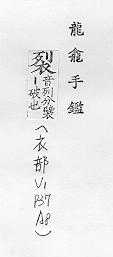 龍龕手鑑
裂音列分裂
丨破也
(衣部V1
B7
A8)